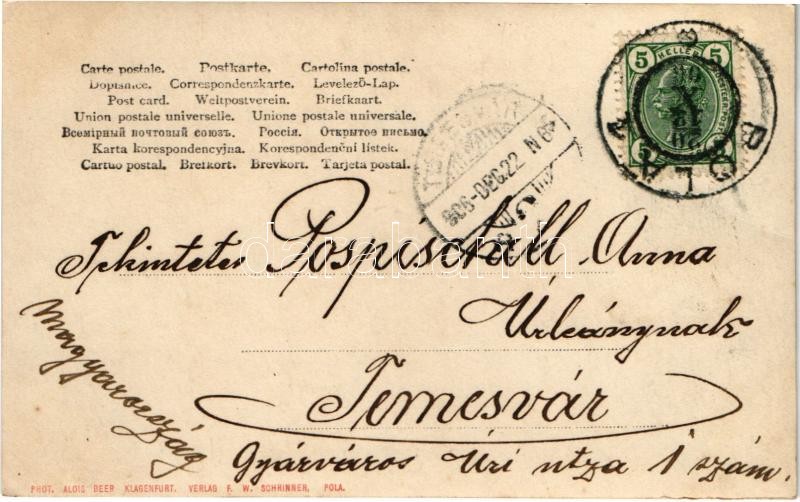 Carte postale. Postkarte. Cartolina postale.
Dopisnice. Correspondenzkarte. Levelező-Lap.
Post card. Weltpostverein. Briefkaart.
Union postale universelle. Unione postale universale.
Всемірный почтовый союзъ. Россія. Открытое письмо.
Karta korespondencyjna. Korespondenční listek.
Cartao postal. Brefkort. Brevkort. Tarjeta postal.
5 HELLER 5
POLA
906-DEC.22 N
Tekintetes Pospischill Anna
Úrleánynak
Magyarország
Temesvár
Gyárváros Úri utza 1 szám.
PHOT. ALOIS BEER KLAGENFURT. VERLAG F. W. SCHRINNER, POLA.
darabanth